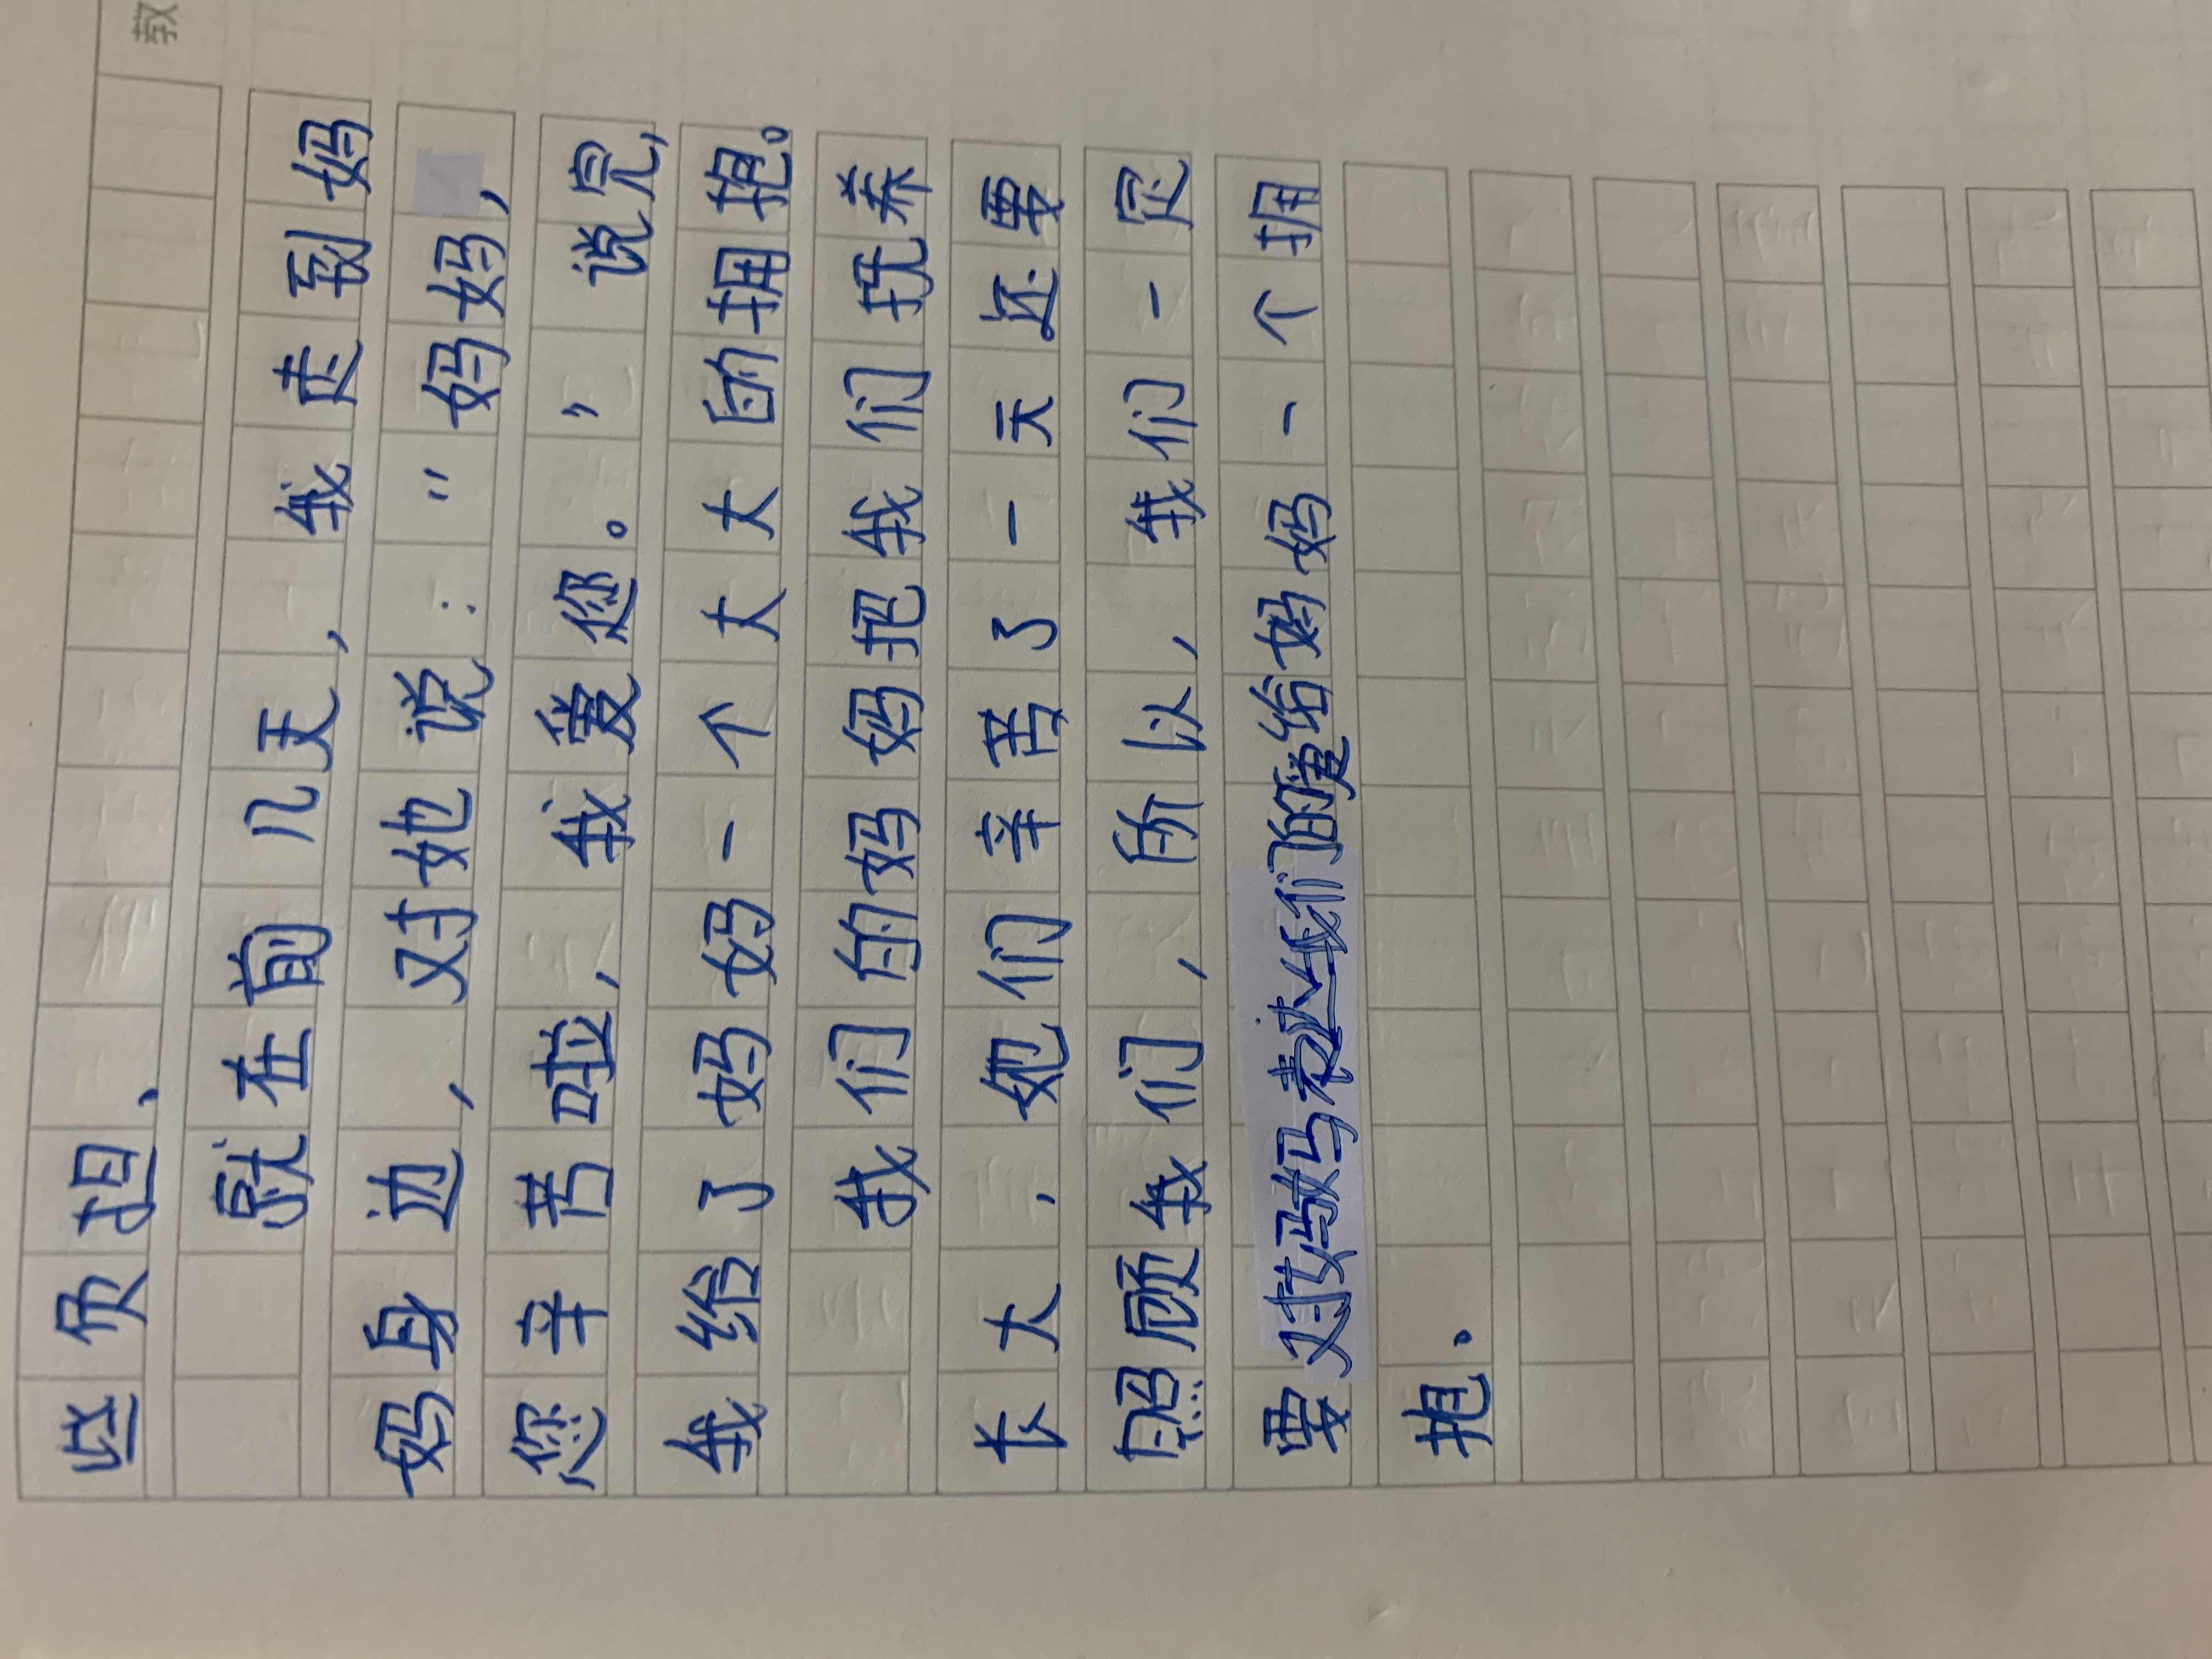 教
些负担、
就在前几天，我走到妈
妈身边，对她说：“妈妈，
您辛苦啦，我爱您。”说完，
我给了妈妈一个大大的拥抱。
我们的妈妈把我们抚养
长大，她们辛苦了一天还要
照顾我们，所以，我们一定
要对妈妈表达我们的爱给妈妈一个拥
抱。